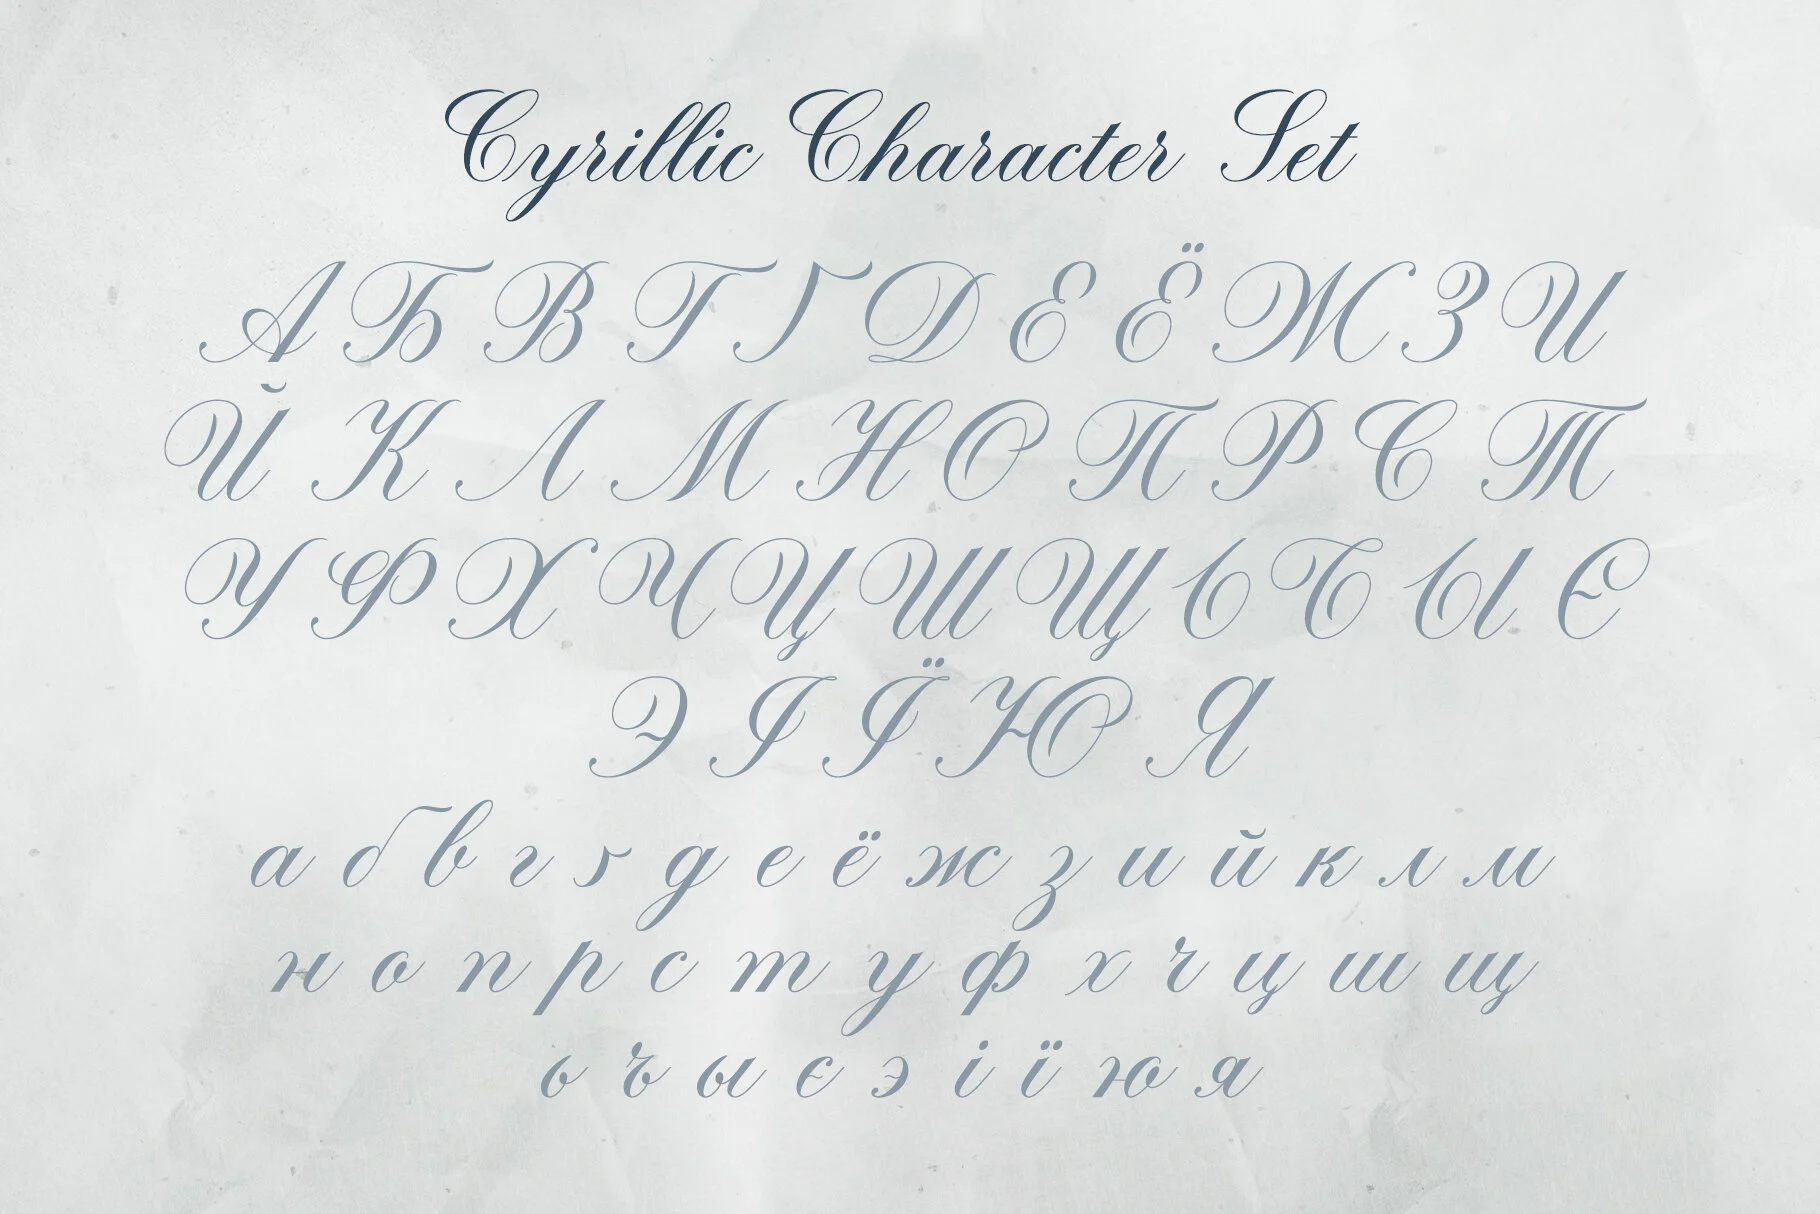 Cyrillic Character Set
А Б В Г Ґ Д Е Ё Ж З И
Й К Л М Н О П Р С Т
У Ф Х Ч Ц Ш Щ Ь Ъ Ы Є
Э І Ї Ю Я
а б в г ґ д е ё ж з и й к л м
н о п р с т у ф х ч ц ш щ
ь ъ ы є э і ї ю я